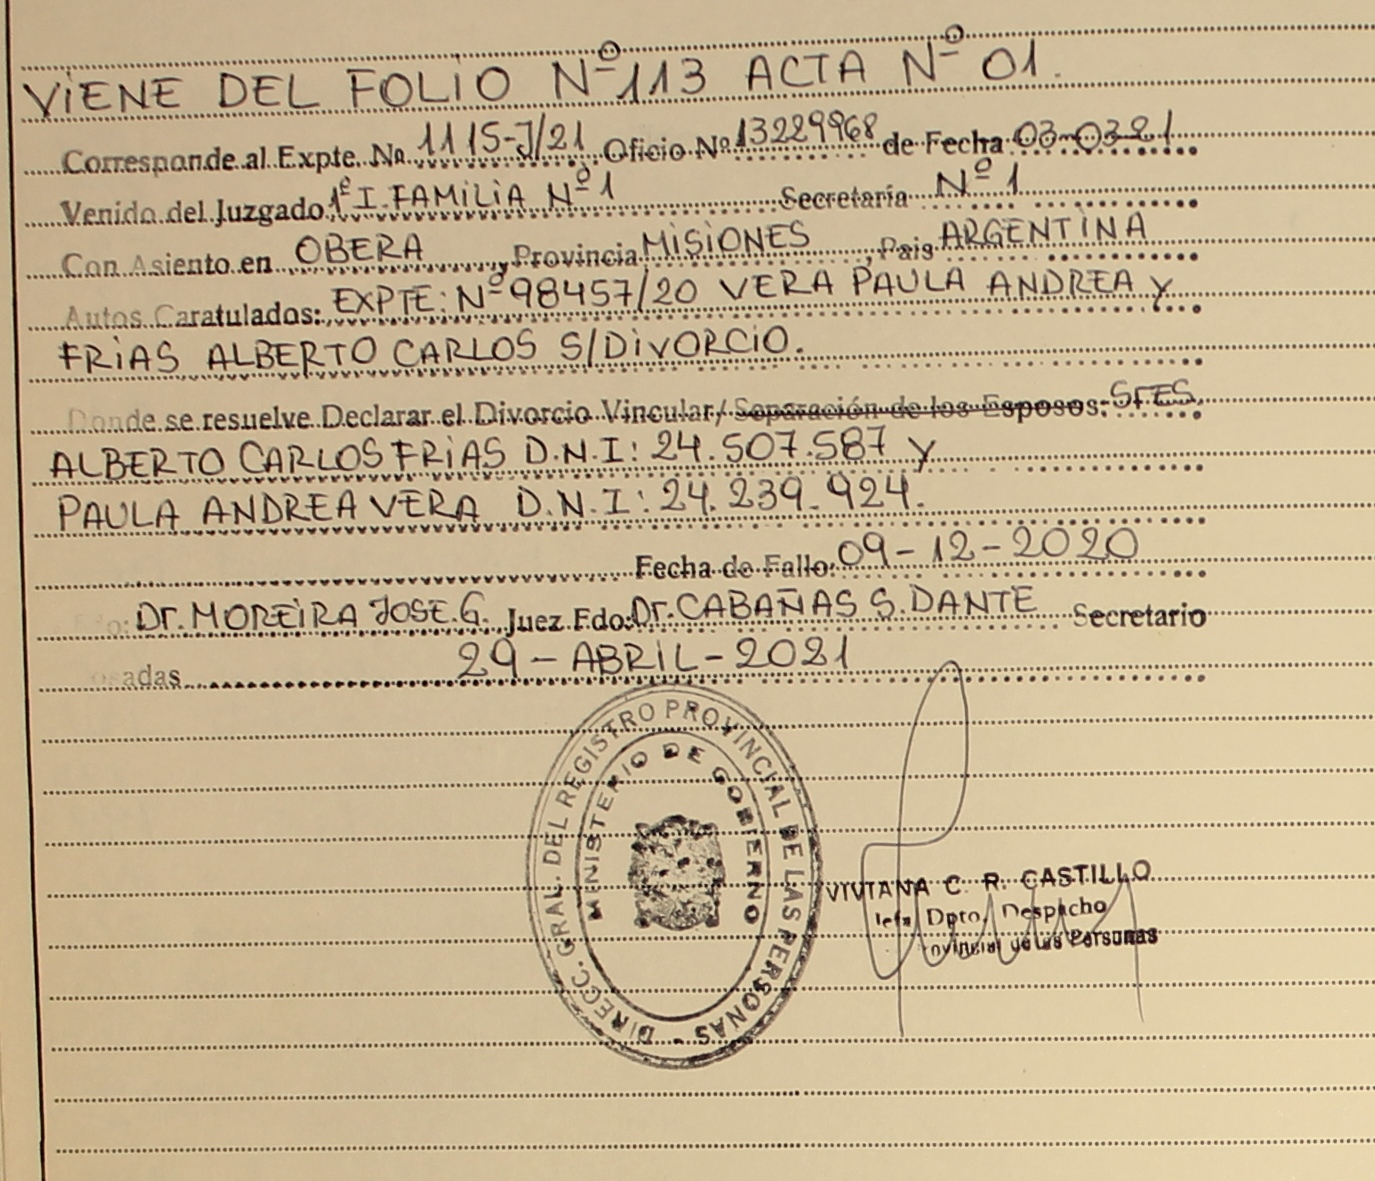 VIENE DEL FOLIO Nº 113 ACTA Nº 01.
Corresponde al Expte. Nº 1115-J/21 Oficio Nº 13229968 de Fecha 03-03-21
Venido del Juzgado 1º I. FAMILIA Nº 1 Secretaría Nº 1
Con Asiento en OBERA, Provincia MISIONES, Pais ARGENTINA
Autos Caratulados: EXPTE: Nº 98457/20 VERA PAULA ANDREA Y
FRIAS ALBERTO CARLOS S/DIVORCIO.
Donde se resuelve Declarar el Divorcio Vincular/ Separación de los Esposos: SrES.
ALBERTO CARLOS FRIAS D.N.I: 24.507.587 y
PAULA ANDREA VERA D.N.I: 24.239.924.
Fecha de Fallo: 09-12-2020
Dr. MOREIRA JOSE. G. Juez Fdo: Dr. CABAÑAS S. DANTE Secretario
adas 29-ABRIL-2021
DIRECC. GRAL. DEL REGISTRO PROVINCIAL DE LAS PERSONAS -
MINISTERIO DE GOBIERNO
VIVIANA C. R. CASTILLO
Jefa Dpto. Despacho
nvincial de las Personas